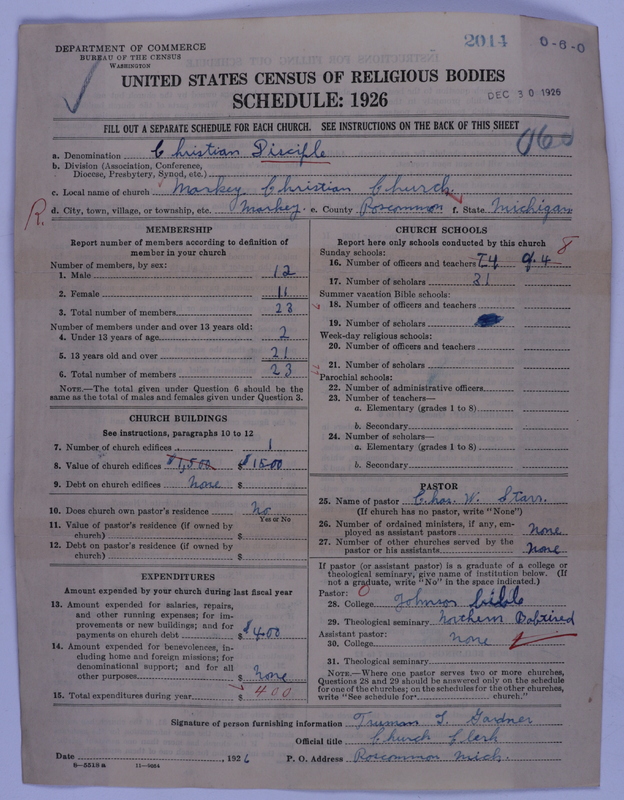 2014 0-6-0
DEPARTMENT OF COMMERCE
BUREAU OF THE CENSUS
WASHINGTON
UNITED STATES CENSUS OF RELIGIOUS BODIES
SCHEDULE: 1926
DEC 30 1926
FILL OUT A SEPARATE SCHEDULE FOR EACH CHURCH. SEE INSTRUCTIONS ON THE BACK OF THIS SHEET
a. Denomination Christian Disciple
b. Division (Association, Conference, Diocese, Presbytery, Synod, etc.)
c. Local name of church Markey Christian Church.
R. d. City, town, village, or township, etc. Markey. e. County Roscommon f. State Michigan
MEMBERSHIP
Report number of members according to definition of member in your church
Number of members, by sex:
1. Male 12
2. Female 11
3. Total number of members 23
Number of members under and over 13 years old:
4. Under 13 years of age 2
5. 13 years old and over 21
6. Total number of members 23
NOTE.—The total given under Question 6 should be the same as the total of males and females given under Question 3.
CHURCH BUILDINGS
See instructions, paragraphs 10 to 12
7. Number of church edifices 1
8. Value of church edifices $1,500 $1500
9. Debt on church edifices None $
10. Does church own pastor's residence No
Yes or No
11. Value of pastor's residence (if owned by church) $
12. Debt on pastor's residence (if owned by church) $
EXPENDITURES
Amount expended by your church during last fiscal year
13. Amount expended for salaries, repairs, and other running expenses; for improvements or new buildings; and for payments on church debt $400
14. Amount expended for benevolences, including home and foreign missions; for denominational support; and for all other purposes $ None
15. Total expenditures during year $ 400
CHURCH SCHOOLS
Report here only schools conducted by this church 8
Sunday schools:
16. Number of officers and teachers
17. Number of scholars 31
Summer vacation Bible schools:
18. Number of officers and teachers
19. Number of scholars
Week-day religious schools:
20. Number of officers and teachers
21. Number of scholars
Parochial schools:
22. Number of administrative officers
23. Number of teachers—
a. Elementary (grades 1 to 8)
b. Secondary
24. Number of scholars—
a. Elementary (grades 1 to 8)
b. Secondary
PASTOR
25. Name of pastor Chas. W. Starr.
(If church has no pastor, write "None")
26. Number of ordained ministers, if any, employed as assistant pastors None
27. Number of other churches served by the pastor or his assistants None
If pastor (or assistant pastor) is a graduate of a college or theological seminary, give name of institution below. (If not a graduate, write "No" in the space indicated.)
Pastor:
28. College Johnson Bible
29. Theological seminary Northern
Assistant pastor:
30. College None
31. Theological seminary
NOTE.—Where one pastor serves two or more churches, Questions 28 and 29 should be answered only on the schedule for one of the churches; on the schedules for the other churches, write "See schedule for church."
Signature of person furnishing information Truman T. Gardner
Official title Church Clerk
Date , 1926 P. O. Address Roscommon Mich.
8—5518 a 11—9664